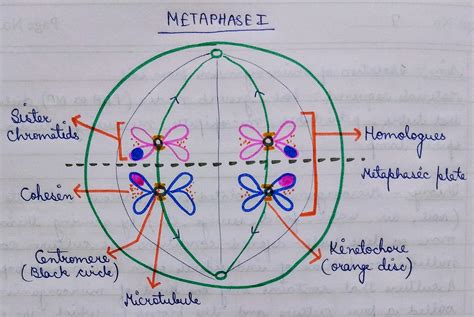 METAPHASE I
Sister
Chromatids
Homologues
Metaphasic plate
Cohesin
Centromere
(Black circle)
Kinetochore
(orange disc)
Microtubule